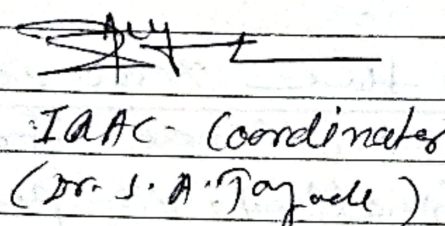 IQAC - Coordinator
(Dr. S. A. Tayade)